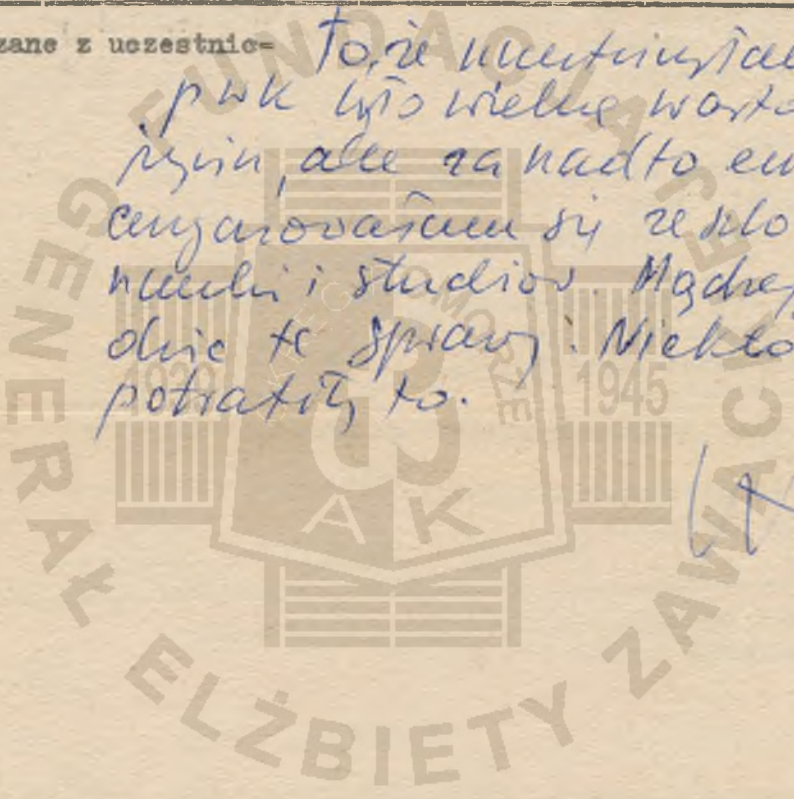 zane z uczestnic=
To, że uczestniczyłam
pwk było wielką warto
życiu, ale za nadto en
cengażowałam się ze szko
nauki i studiów. Mądrzej
dzić te sprawy. Niekto
potrafiły to.
FUNDACJA GENERAŁ ELŻBIETY ZAWACKIEJ
1939
1945
POMORZE
AK